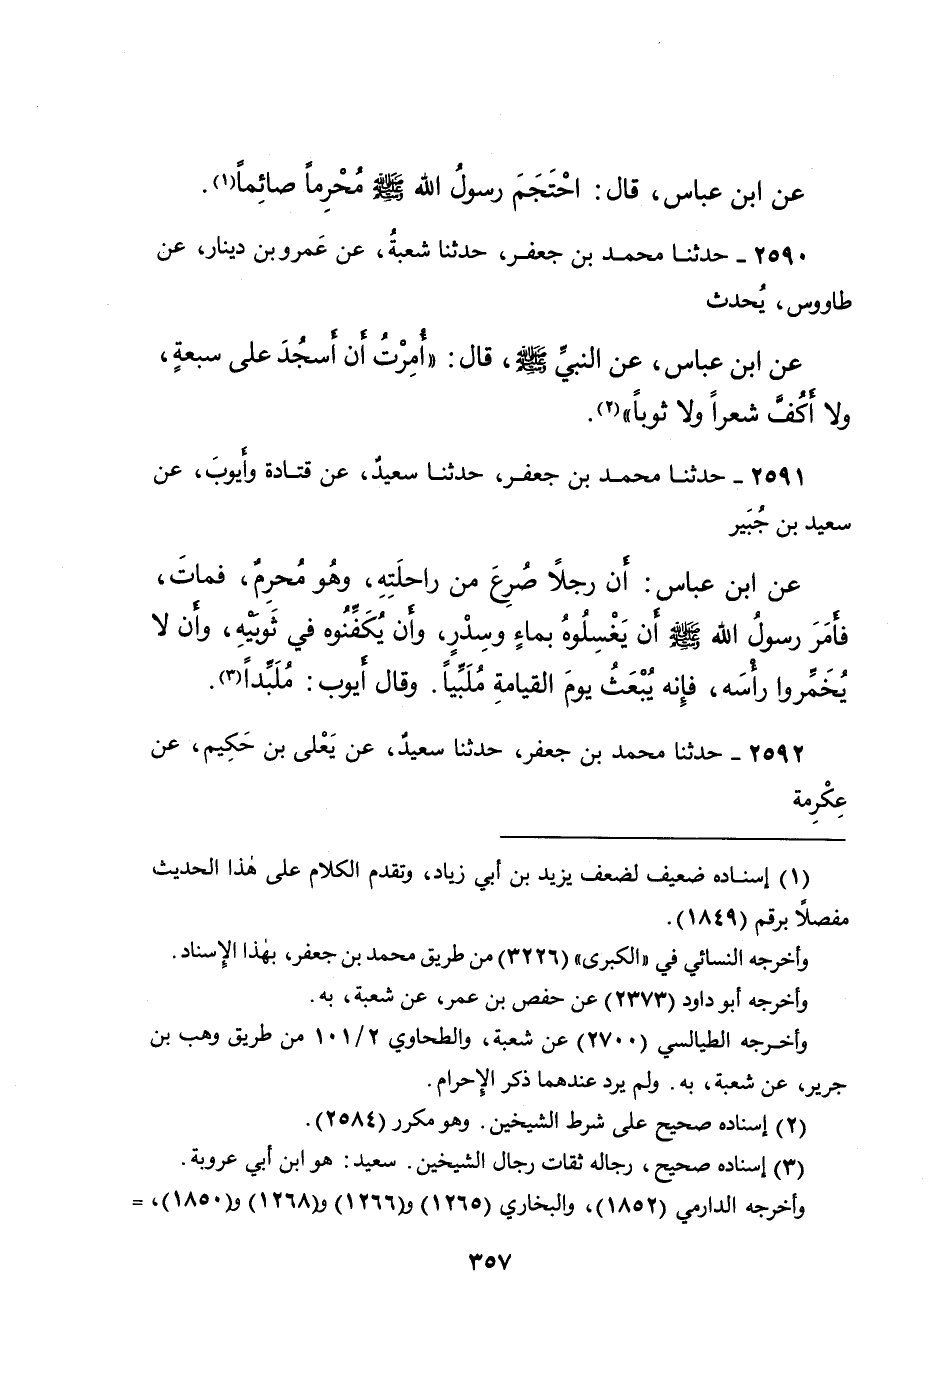 عن ابن عباس، قال: احْتَجَمَ رسولُ الله ﷺ مُحْرِماً صائِماً(١).
٢٥٩٠ ـ حدثنا محمد بن جعفر، حدثنا شعبةُ، عن عَمرو بن دينار، عن
طاووس، يُحدث
عن ابن عباس، عن النبيِّ ﷺ، قال: «أُمِرْتُ أَن أَسجُدَ على سبعةٍ،
ولا أَكُفَّ شعراً ولا ثوباً»(٢).
٢٥٩١ ـ حدثنا محمد بن جعفر، حدثنا سعيدٌ، عن قتادة وأَيوبَ، عن
سعيد بن جُبَير
عن ابن عباس: أَن رجلًا صُرِعَ من راحلَتِهِ، وهُو مُحرِمٌ، فماتَ،
فأَمَرَ رسولُ الله ﷺ أَن يَغْسِلُوهُ بماءٍ وسِدْرٍ، وأَن يُكَفِّنُوه في ثَوبَيْهِ، وأَن لا
يُخَمِّروا رأْسَه، فإِنه يُبْعَثُ يومَ القيامةِ مُلَبِّياً. وقال أَيوب: مُلَبِّداً(٣).
٢٥٩٢ ـ حدثنا محمد بن جعفر، حدثنا سعيدٌ، عن يَعْلى بن حَكِيم، عن
عِكْرِمة
(١) إسناده ضعيف لضعف يزيد بن أبي زياد، وتقدم الكلام على هٰذا الحديث
مفصلًا برقم (١٨٤٩).
وأخرجه النسائي في «الكبرى» (٣٢٢٦) من طريق محمد بن جعفر، بهٰذا الإِسناد.
وأخرجه أبو داود (٢٣٧٣) عن حفص بن عمر، عن شعبة، به.
وأخرجه الطيالسي (٢٧٠٠) عن شعبة، والطحاوي ١٠١/٢ من طريق وهب بن
جرير، عن شعبة، به. ولم يرد عندهما ذكر الإِحرام.
(٢) إسناده صحيح على شرط الشيخين. وهو مكرر (٢٥٨٤).
(٣) إسناده صحيح، رجاله ثقات رجال الشيخين. سعيد: هو ابن أبي عروبة.
وأخرجه الدارمي (١٨٥٢)، والبخاري (١٢٦٥) و(١٢٦٦) و(١٢٦٨) و(١٨٥٠)، =
٣٥٧